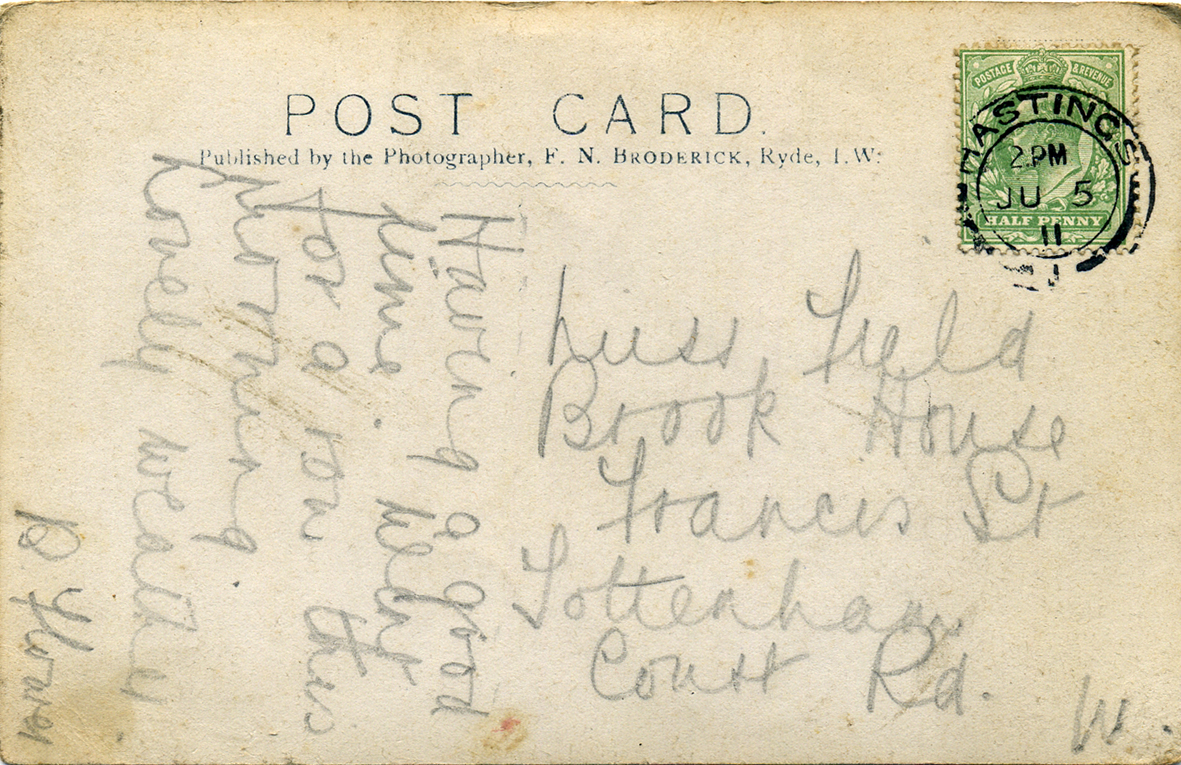 POST CARD.
Published by the Photographer, F. N. BRODERICK, Ryde, I.W.
POSTAGE & REVENUE
HALF PENNY
HASTINGS
2.PM
JU 5
11
Miss Field
Brook House
Francis St
Tottenham
Court Rd.
W.
Having a good
time. Went
for a row this
morning
Lovely weather
B